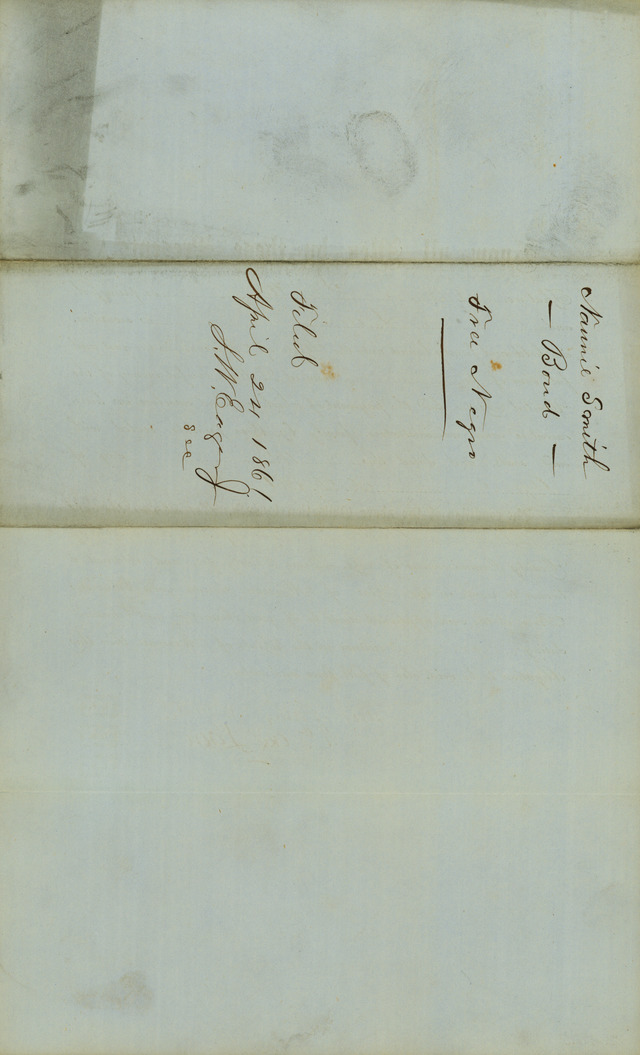 Nannie Smith
— Bond —
Free Negro
Filed
April 24 1861
S. W. Eager Jr